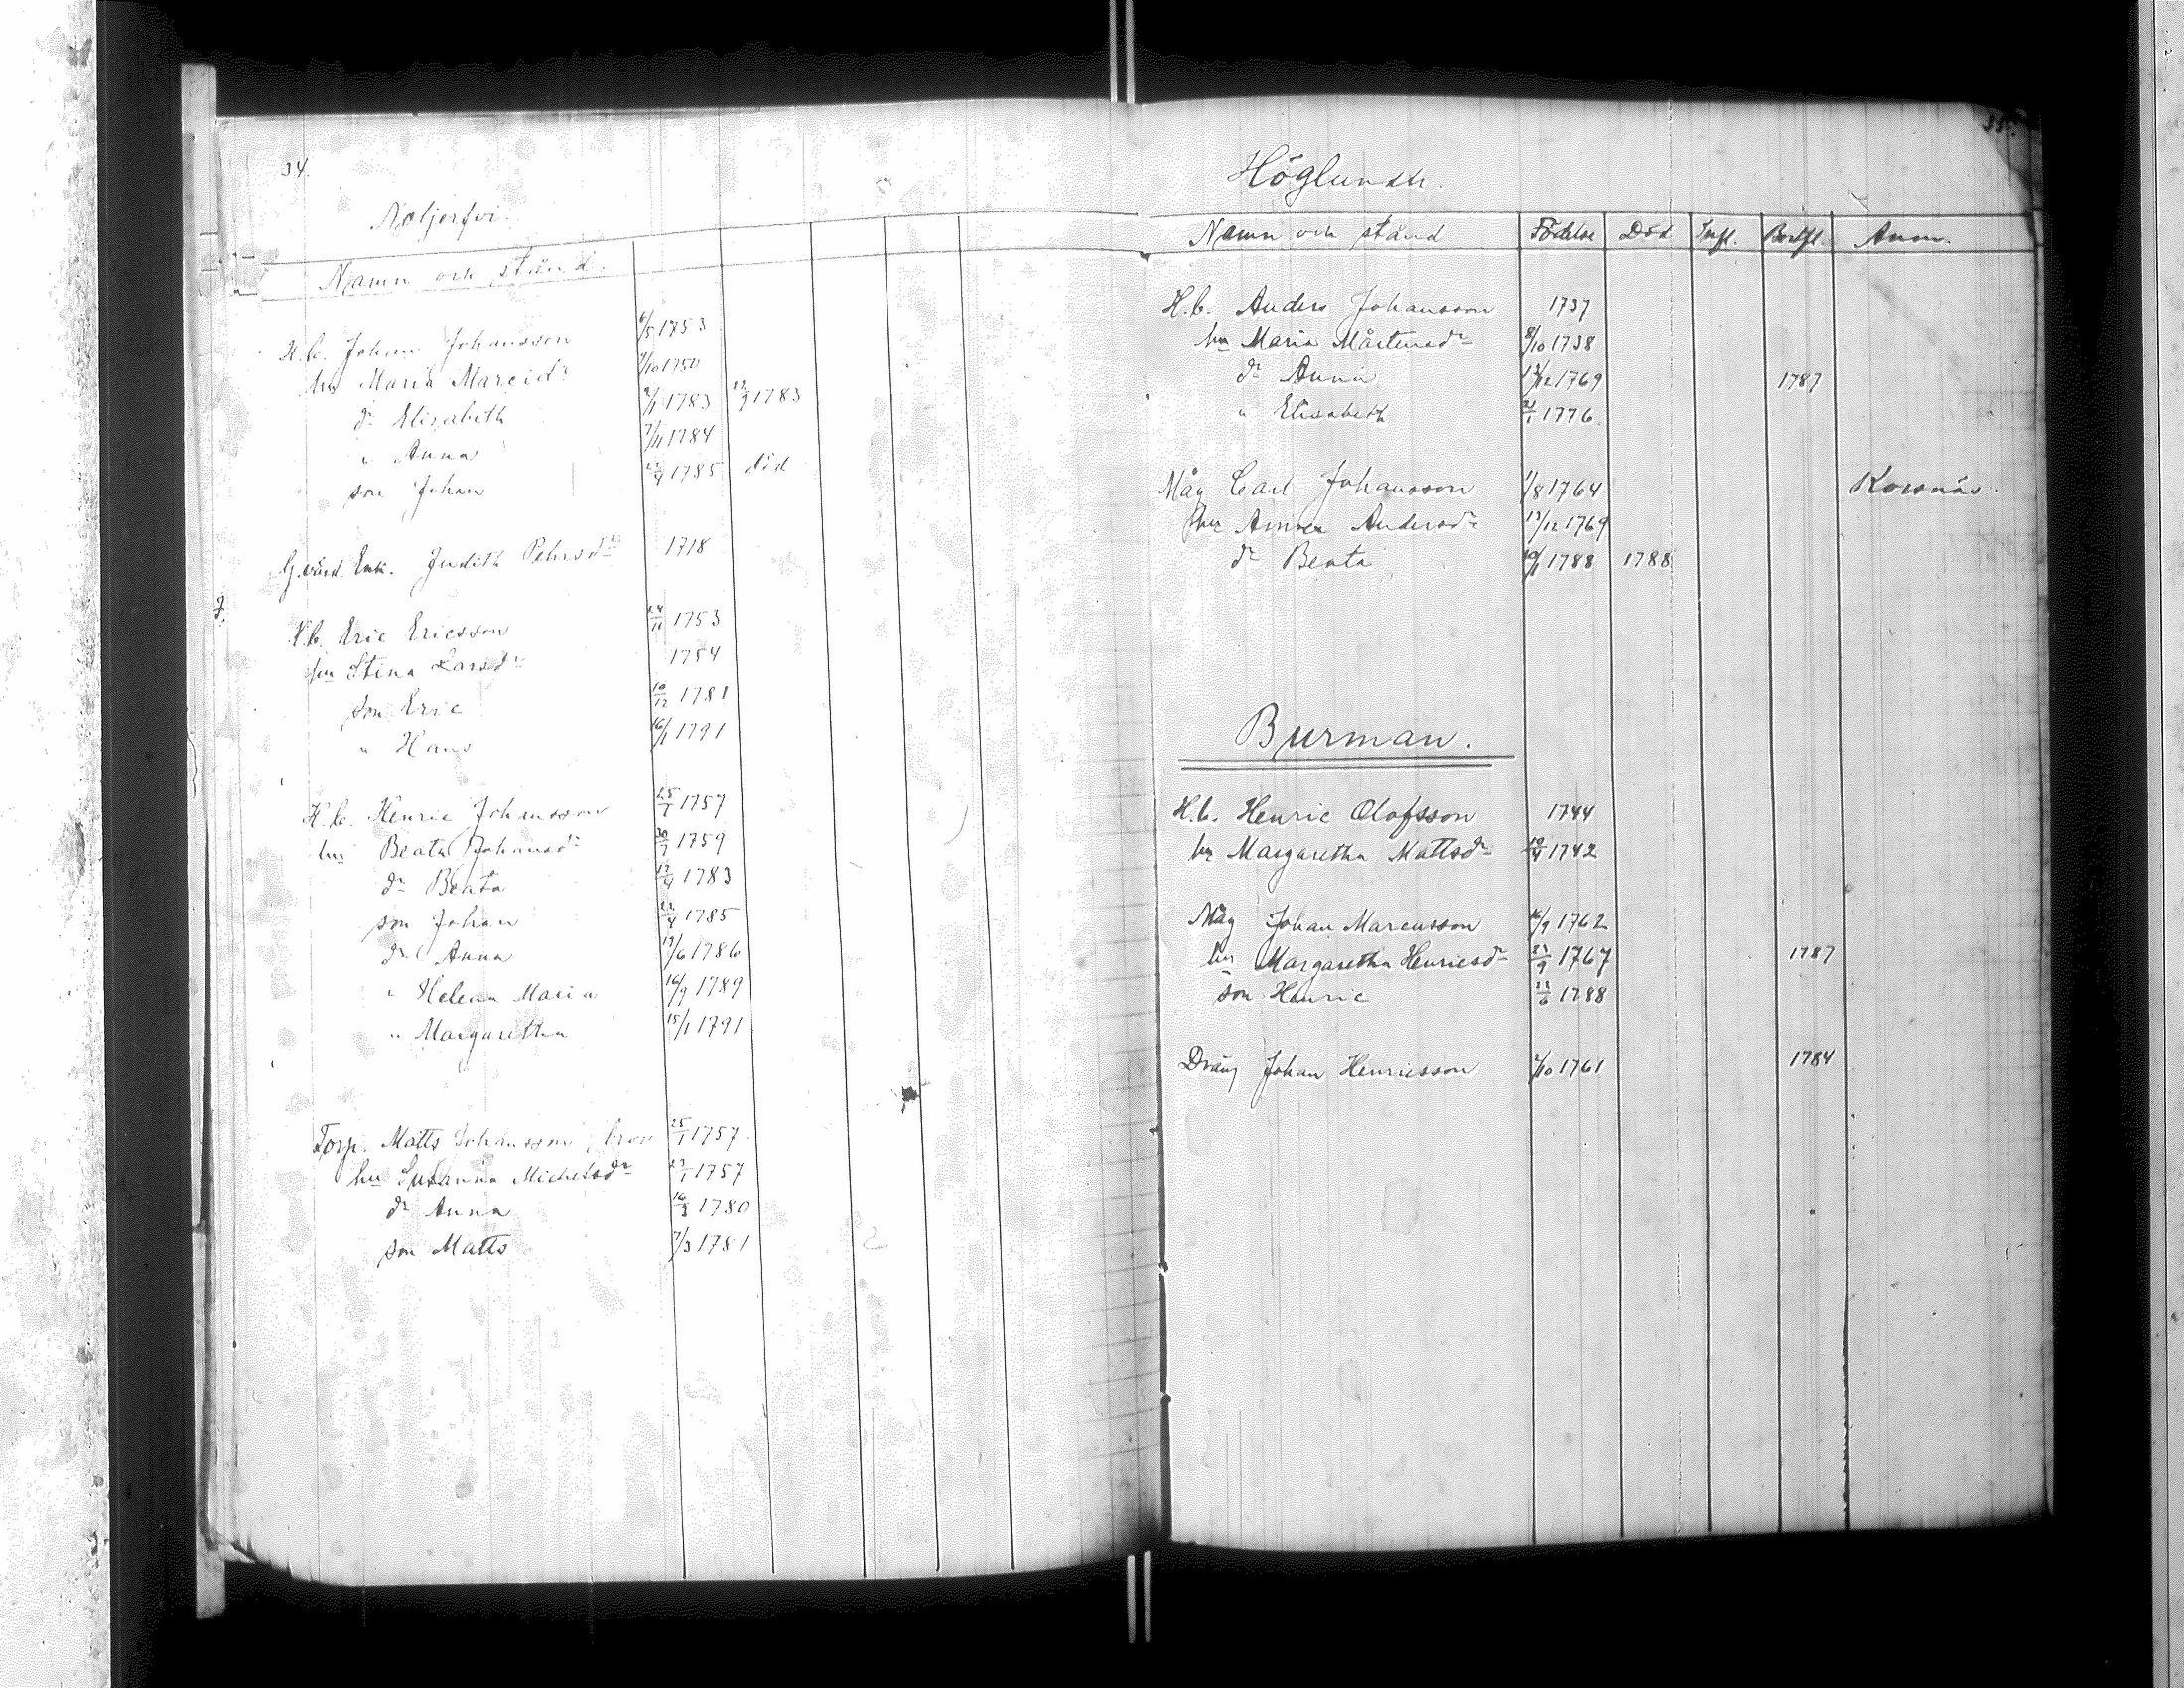 34.
Naljerfvi.
Namn och stånd.
H.b. Johan Johansson 6/5 1753
hu Maria Marcidr 7/10 1750
dr Elisabeth 9/1 1783 1783
" Anna 7/11 1784
son Johan 1785 död
G.värd. Enk. Judith Pehrsdr 1718
H.b. Eric Ericsson 24/11 1753
hu Stina Larsdr 1754
son Eric 10/12 1781
" Hans 16/1 1791
H.b. Henric Johansson 25/7 1757
hu Beata Johansdr 30/7 1759
dr Beata 12/9 1783
son Johan 22/4 1785
dr Anna 17/6 1786
" Helena Maria 16/9 1789
" Margaretha 15/1 1791
Torp. Matts Johansson, bror 25/1 1757.
hu Susanna Michelsdr 23/1 1757
dr Anna 16/3 1780
son Matts 7/3 1781
35.
Höglundh.
Namn och stånd Födelse Död Infl. Bortfl. Anm.
H.b. Anders Johansson 1737
hu Maria Mårtensdr 8/10 1738
dr Anna 13/12 1769 1787
" Elisabeth 21/1 1776
Måg Carl Johansson 1/8 1764 Korsnäs.
hu Anna Andersdr 13/12 1769
dr Beata 1788 1788
Burman.
H.b. Henric Olofsson 1744
hu Margaretha Mattsdr 1742
Måg Johan Marcusson 16/9 1762
hu Margaretha Henricsdr 23/9 1767 1787
son Henric 23/6 1788
Dräng Johan Henricsson 2/10 1761 1784